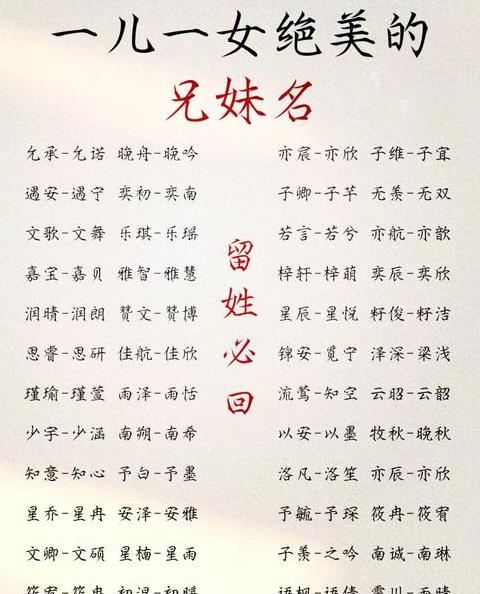 一儿一女绝美的
兄妹名
允承-允诺 晚舟-晚吟
遇安-遇宁 奕初-奕南
文歌-文舞 乐琪-乐瑶
嘉宝-嘉贝 雅智-雅慧
润晴-润朗 赞文-赞博
思睿-思研 佳航-佳欣
瑾瑜-瑾萱 雨泽-雨恬
少宇-少涵 南朔-南希
知意-知心 予白-予墨
星乔-星冉 安泽-安雅
文卿-文硕 星楠-星雨
留姓必回
亦宸-亦欣 子维-子宜
子卿-子芊 无羡-无双
若言-若兮 亦航-亦歆
梓轩-梓萌 奕辰-奕欣
星辰-星悦 籽俊-籽洁
锦安-觅宁 泽深-梁浅
流莺-知空 云昭-云韶
以安-以墨 牧秋-晚秋
洛凡-洛笙 亦辰-亦欣
予毓-予琛 筱冉-筱宥
子羡-之吟 南诚-南琳